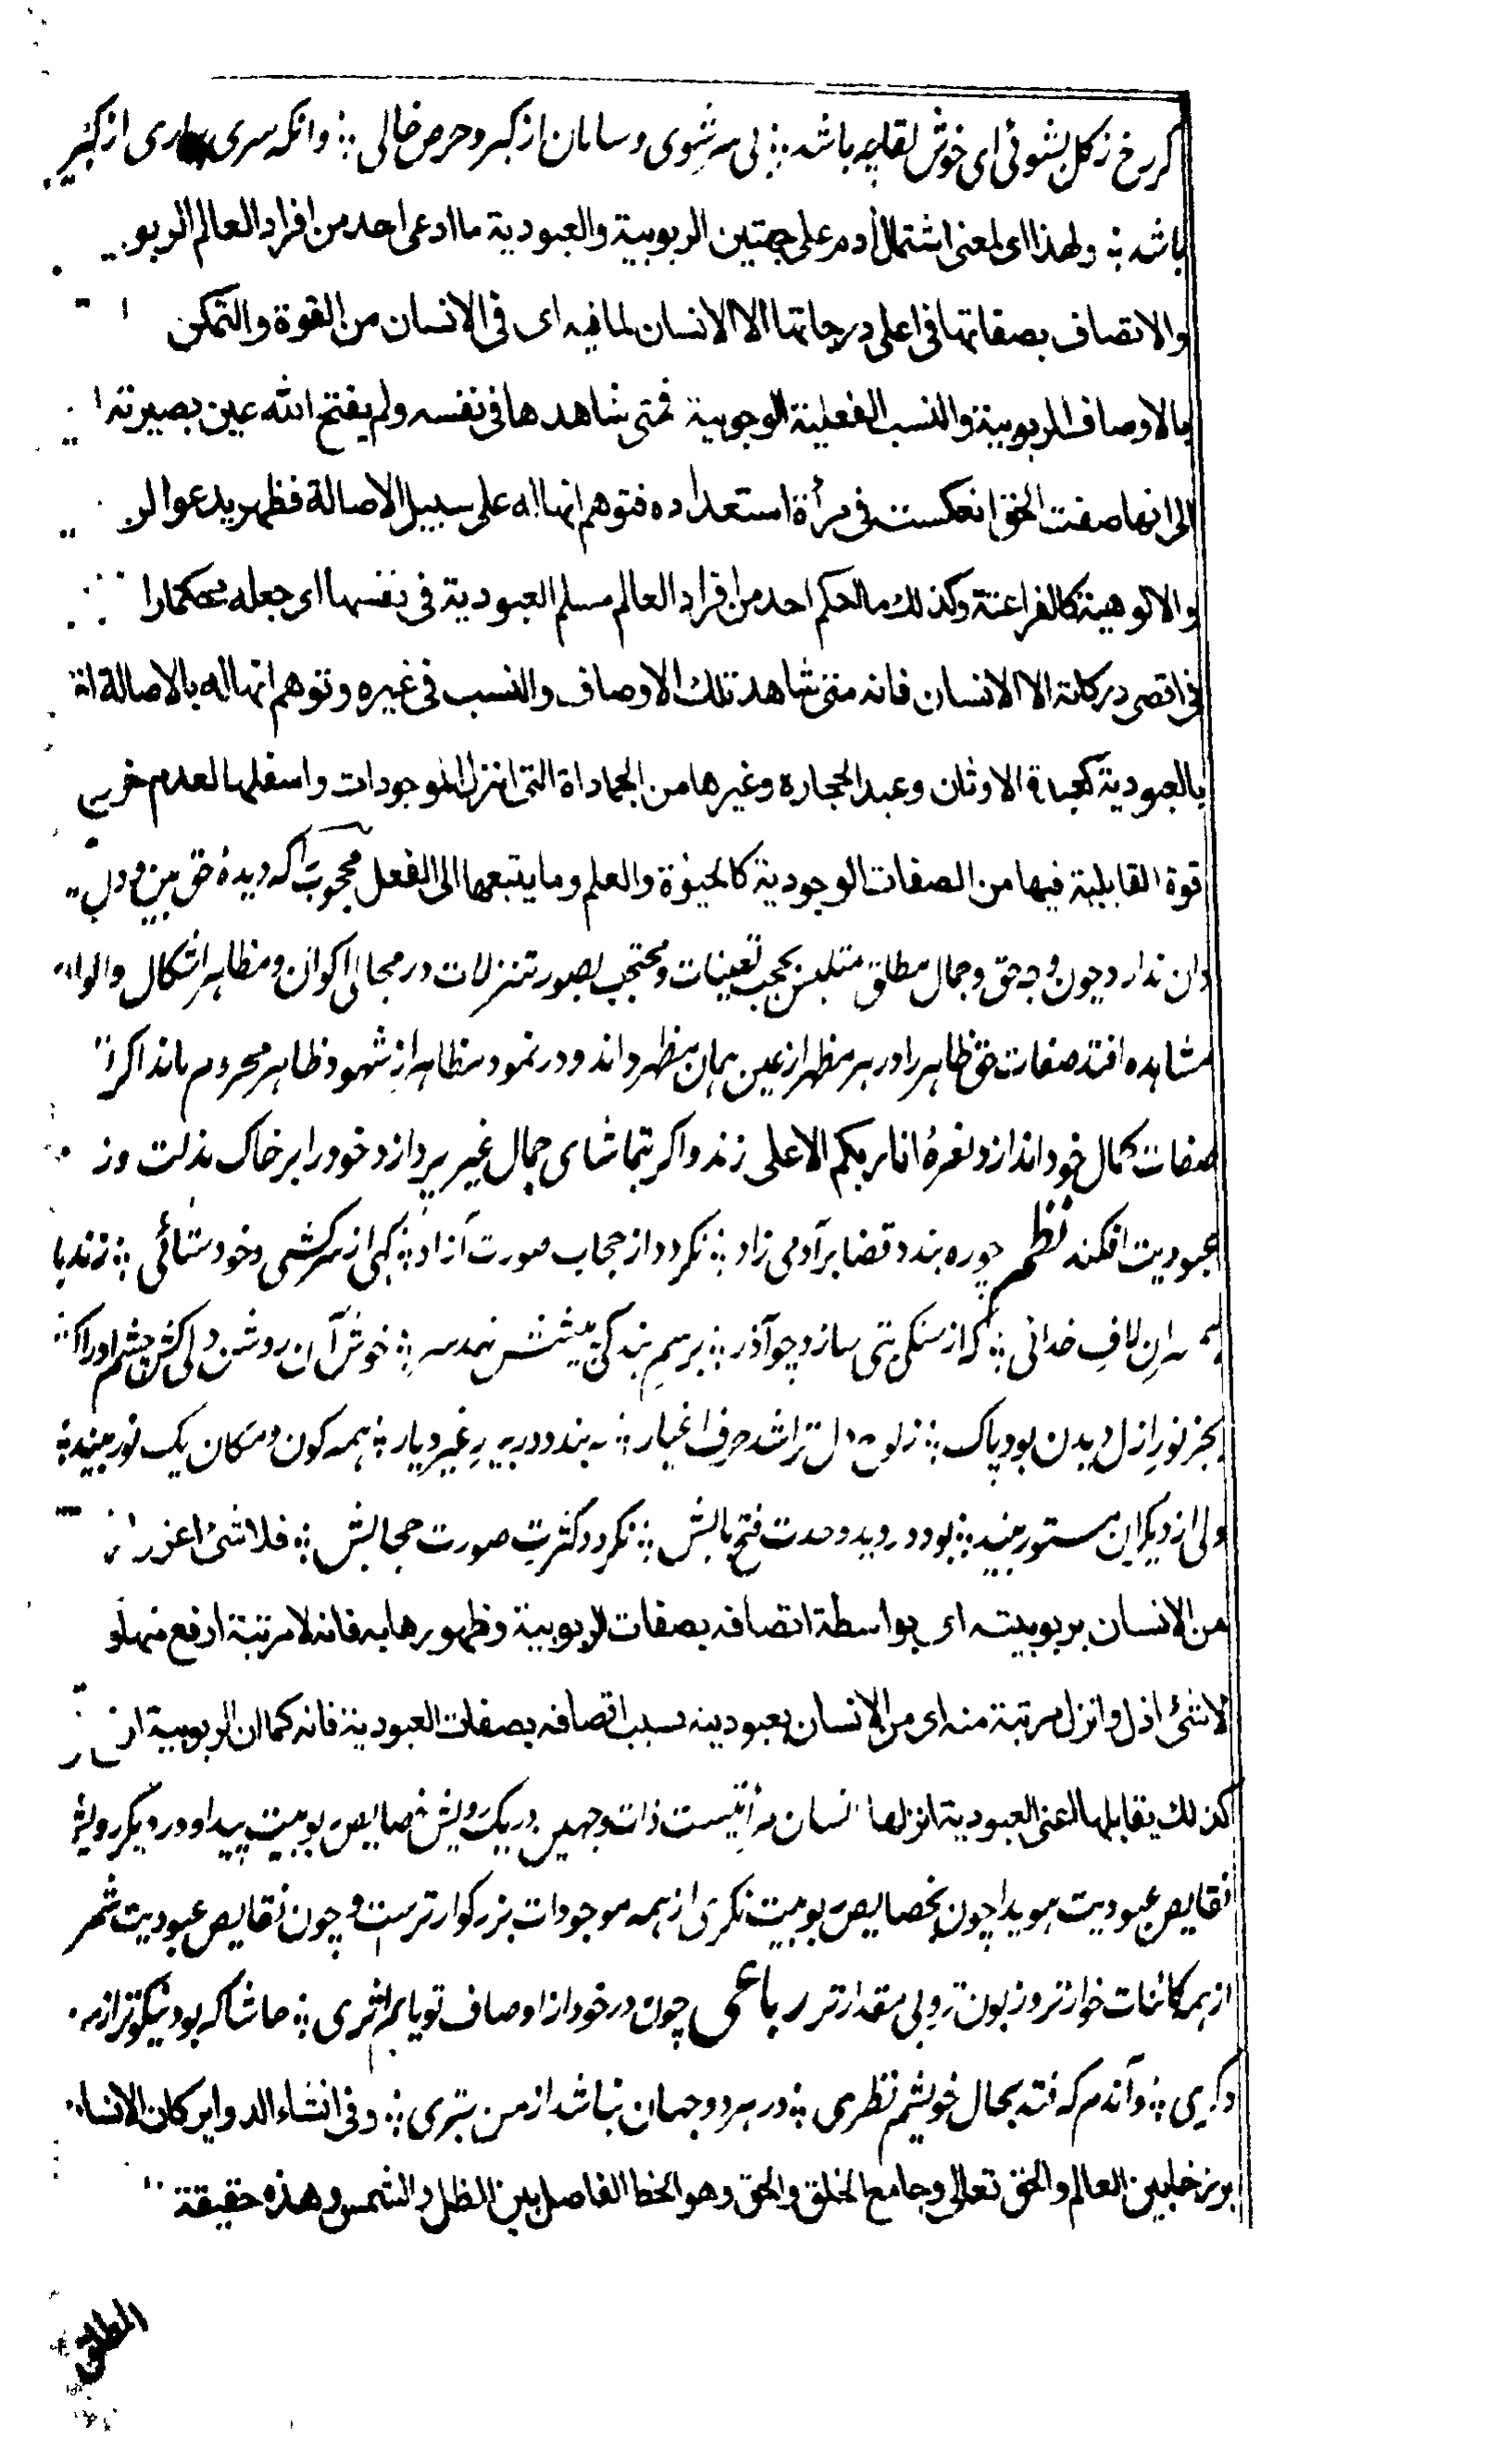 کر رخ ز کل بشوئی ای خوش لقا چه باشد ؞ بی سر شوی و سامان از کبر و حرص خالی ؞ وانکه سری براری از کبر
باشد ؞ ولهذا ای لمعنی اشتمال آدم علی جهتین الربوبية والعبودية ما ادعی احد من افراد العالم الربو
والاتصاف بصفاتها فی اعلی درجاتها الا الانسان لما فیه ای فی الانسان من القوة والتمکن
بالاوصاف الربوبية والنسب الفعلية الوجوبية فمتی شاهدها فی نفسه ولم یفتح الله عین بصیرته
الی انها صفت الحق انعکست فی مرأة استعداده فتوهم انها له علی سبیل الاصالة فظهر یدعوا
والالوهية کالفراعنة وکذلك ما احکم احد من افراد العالم مسلم العبودية فی نفسها ای جعله محکما
فی اقصی درکاته الا الانسان فانه متی شاهد تلك الاوصاف والنسب فی غیره وتوهم انها له بالاصالة
بالعبودية کعبدة الاوثان وعبد الحجاره وغیرها من الجماداة التی انزل الموجودات واسفلها لعدم
قوة القابلية فیها من الصفات الوجودية کالحیوة والعلم وما یتبعها الی الفعل محجوب که دیدهٔ حق بین و دل
دان ندارد چون وجه حق و جمال مطلق متلبس بحجب تعینات و محتجب بصور تنزلات در مجالی اکوان و مظاهر اشکال والوان
مشاهده افتد صفات حق ظاهر را در هر مظهر از عین همان مظهر داند و در نمود مظاهر از شهود ظاهر محروم ماند اگر
صفات کمال خود اندازد نعرهٔ انا ربکم الاعلی زند و اکر بتماشای جمال غیر پردازد خود را بر خاک مذلت و
عبودیت افکند نظم چو ره بندد قضا بر آدمی زاد ؞ نکردد از حجاب صورت آزاد ؞ کهی از سرکشی و خودستائی ؞ زند با
لاف خدائی ؞ که از سنکی بتی سازد چو آذر ؞ برسم بندکی پیشش نهد سر ؞ خوش آن روشن دلی کش چشم ادراک
بجز نور ازل دیدن بود پاک ؞ ز لوح دل تراشد حرف اغیار ؞ به بندد در به غیر دیار ؞ همه کون و مکان یک نور بیند ؞
ولی از دیکران مستور بیند ؞ بود در دید وحدت فتح بابش ؞ نکردد کثرت صورت حجابش ؞ فلا شئ اعز
من الانسان بربوبیته ای بواسطة اتصافه بصفات الربوبية وظهورها به فانه لا مرتبة ارفع منها و
لا شئ اذل وانزل مرتبة منه ای من الانسان بعبودیته بسبب اتصافه بصفات العبودية فانه کما ان الربوبية
کذلك یقابلها اعنی العبودية انزلها انسان مرأتیست ذات وجهین در یک رویش خصایص ربوبیت پیدا و در دیکر رویش
نقایص عبودیت هویدا چون بخصایص ربوبیت نکری از همه موجودات بزرکوارترست و چون نقایص عبودیت شمر
از همه کائنات خوارتر و زبون تر و بی مقدارتر رباعی چون در خود از اوصاف تو یابم اثری ؞ حاشا که بود نیکوتر از
دکری ؞ وآندم که فتد بحال خویشم نظری ؞ در هر دو جهان نباشد از من بتری ؞ وفی انشاء الدوایر کان الانسان
برزخا بین العالم والحق تعالی وجامع الخلق والحق وهو الخط الفاصل بین الظل والشمس وهذه حقیقة
المطلق